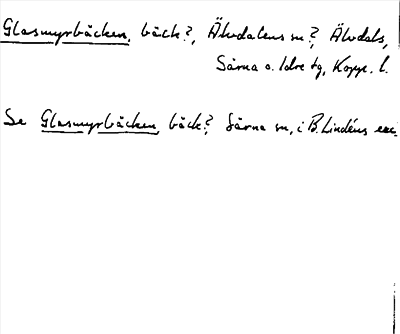 Glasmyrbäcken, bäck?, Älvdalens sn?, Älvdals,
Särna o. Idre tg, Kopp. l.
Se Glasmyrbäcken, bäck? Särna sn, i B. Lindéns exc.